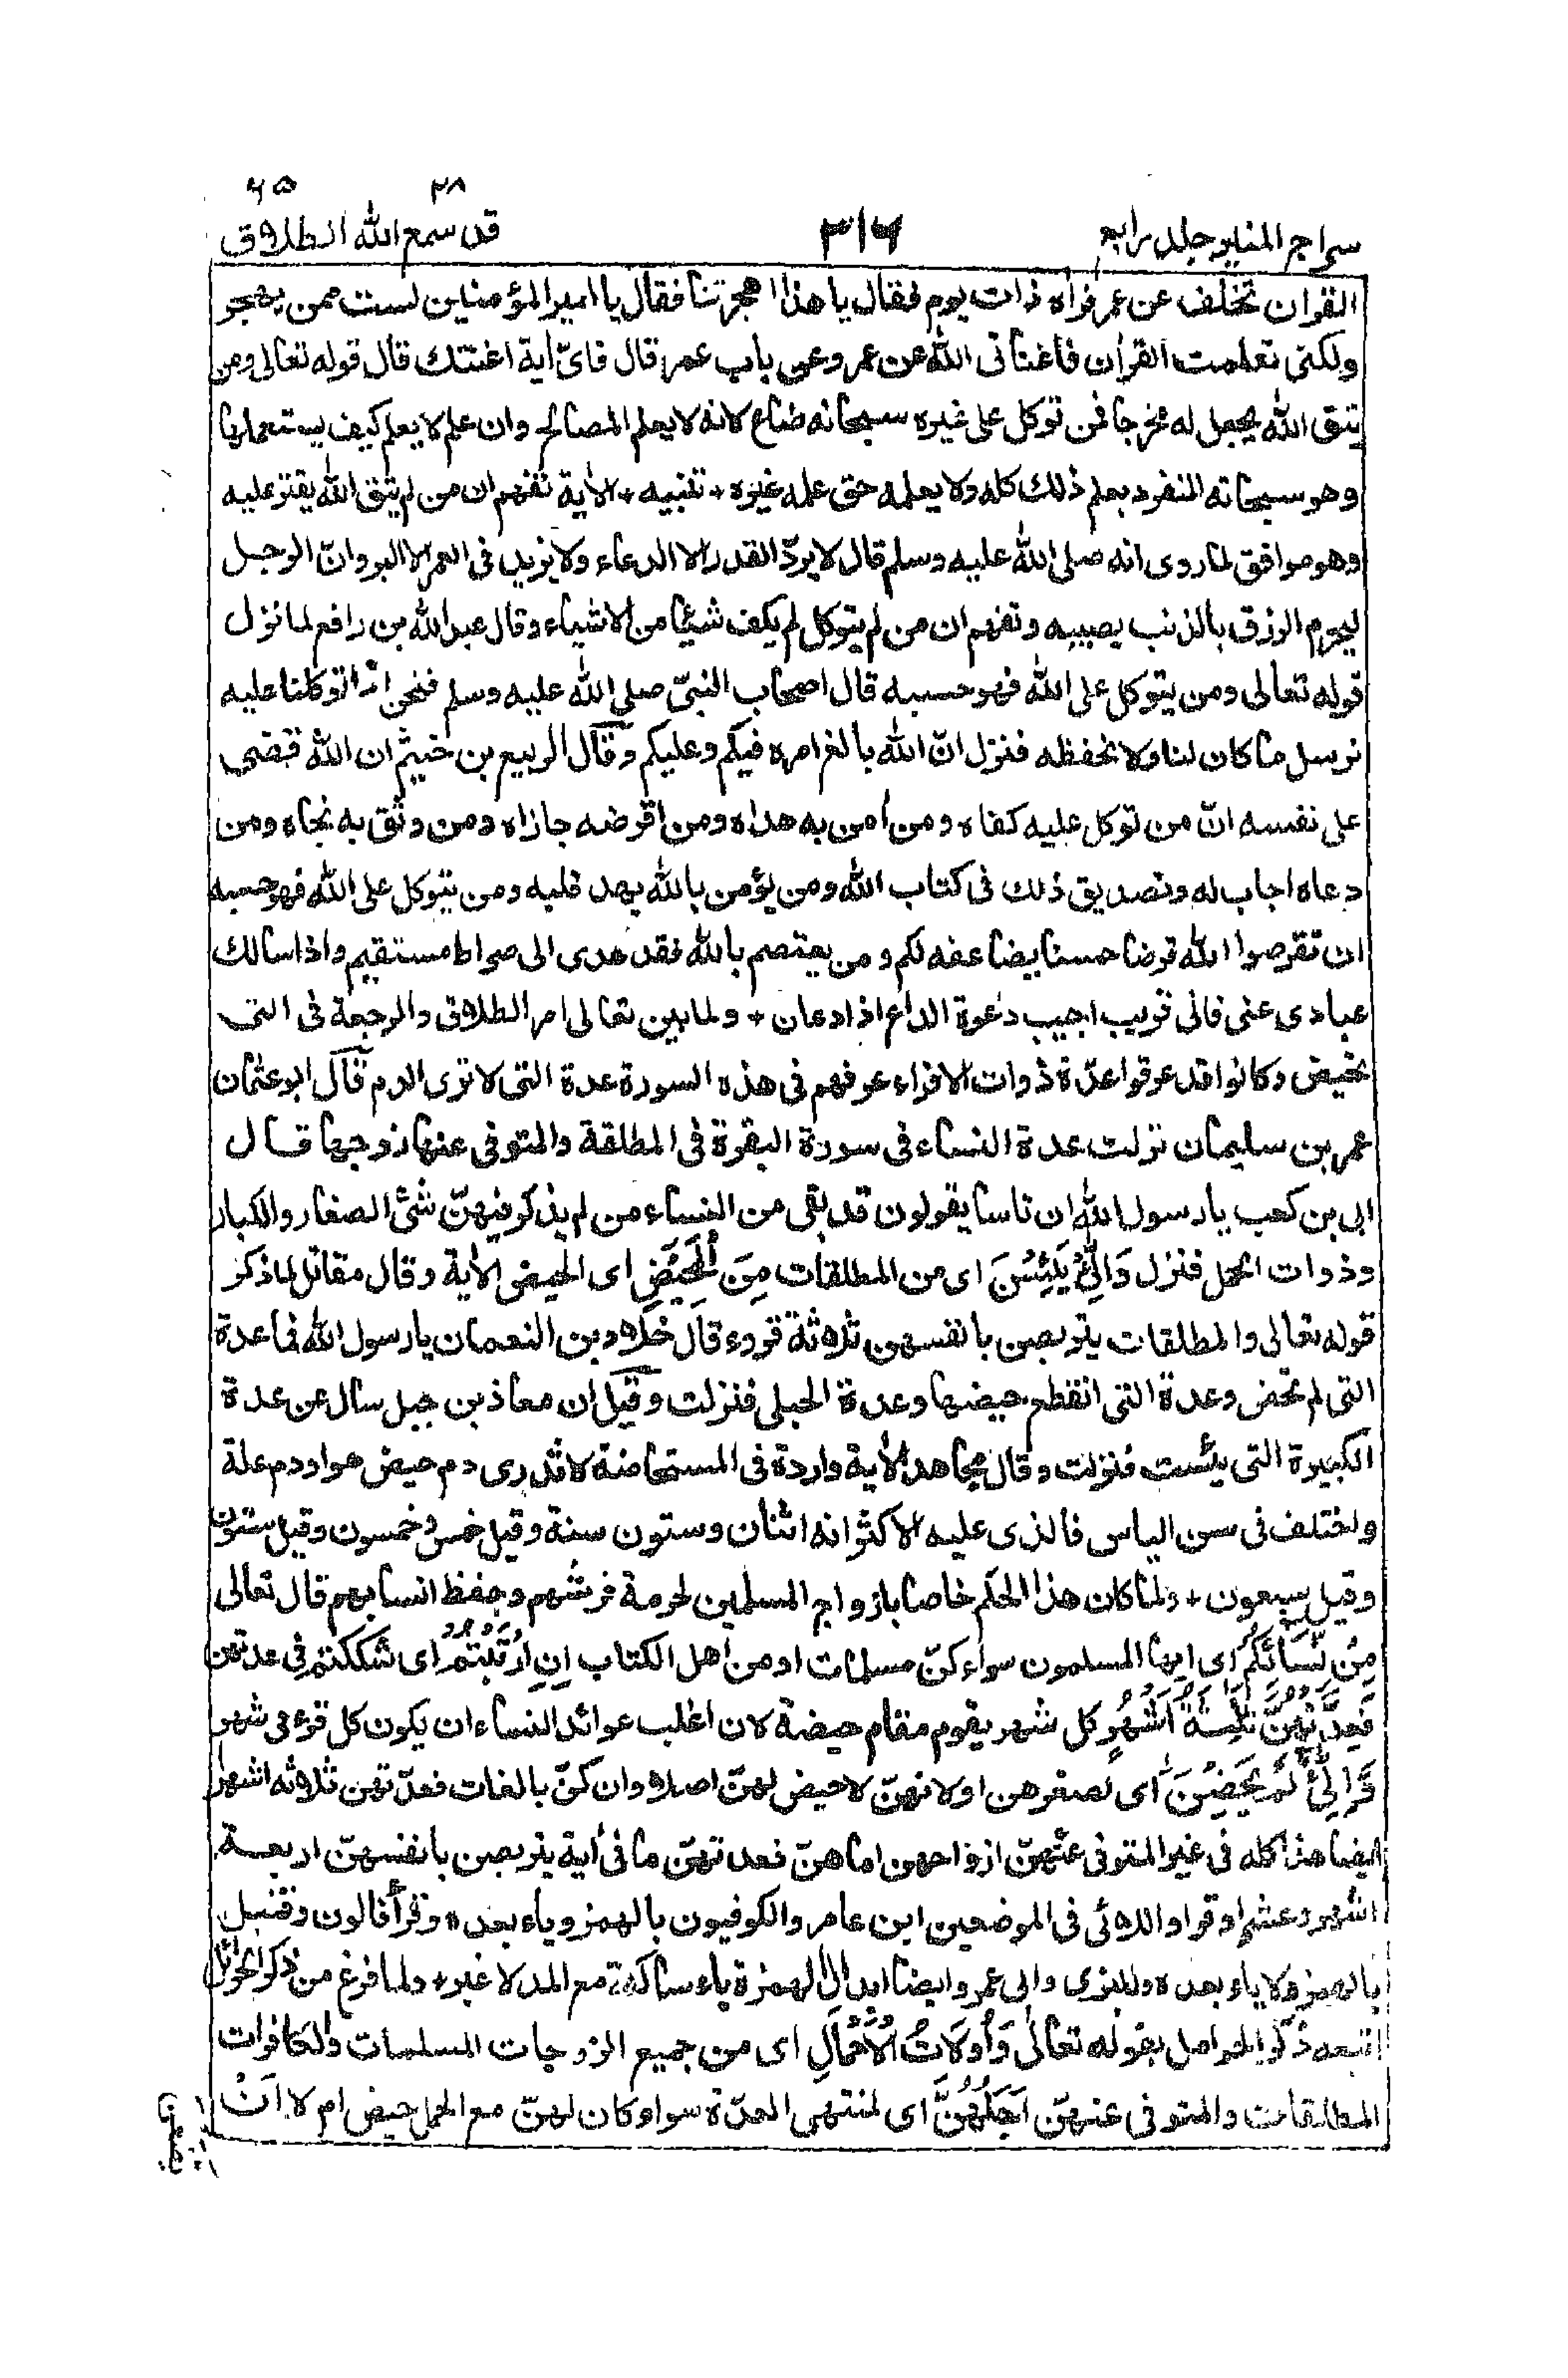 ۲۸ ۶۵
سراج المنير جلد رابع ۳۱۶ قد سمع الله الطلاق
القرآن تخلف عن عمر فراه ذات يوم فقال يا هذا هجرتنا فقال يا امير المؤمنين لست ممن يهجر
ولكنى تعلمت القرآن فاغنانى الله عن عمر وعن باب عمر قال فاىّ اٰية اغنتك قال قوله تعالى ومن
يتق الله يجعل له مخرجا فمن توكل على غيره سبحانه ضاع لانه لا يعلم المصالح وان علم لا يعلم كيف يستعملها
وهو سبحانه المنفرد بعلم ذلك كله ولا يعلمه حق علمه غيره + تنبيه + الاٰية تفهم ان من لم يتق الله يقتر عليه
وهو موافق لما روى انه صلى الله عليه وسلم قال لا يردّ القدر الا الدعاء ولا يزيد فى العمر الا البر وانّ الرجل
ليحرم الرزق بالذنب يصيبه وتفهم ان من لم يتوكل لم يكف شيئا من الاشياء وقال عبد الله بن رافع لما نزل
قوله تعالى ومن يتوكل على الله فهو حسبه قال اصحاب النبىّ صلى الله عليه وسلم فنحن اذا توكلنا عليه
نرسل ما كان لنا ولا نحفظه فنزل انّ الله بالغ امره فيكم وعليكم وقال الربيع بن خيثم ان الله قضى
على نفسه انّ من توكل عليه كفاه ومن اٰمن به هداه ومن اقرضه جازاه ومن وثق به نجاه ومن
دعاه اجاب له وتصديق ذلك فى كتاب الله ومن يؤمن بالله يهد قلبه ومن يتوكل على الله فهو حسبه
ان تقرضوا الله قرضا حسنا يضاعفه لكم ومن يعتصم بالله فقد هدى الى صراط مستقيم واذا سالك
عبادى عنى فانى قريب اجيب دعوة الداع اذا دعان + ولما بين تعالى امر الطلاق والرجعة فى التى
تحيض وكانوا قد عرفوا عدّة ذوات الاقراء عرفهم فى هذه السورة عدة التى لا ترى الدم قال ابو عثمان
عمر بن سليمان نزلت عدة النساء فى سورة البقرة فى المطلقة والمتوفى عنها زوجها قال
ابى بن كعب يا رسول الله ان ناسا يقولون قد بقى من النساء من لم يذكر فيهنّ شئ الصغار والكبار
وذوات الحمل فنزل وَالّٰئِ يَئِسْنَ اى من المطلقات مِنَ الْمَحِيْضِ اى الحيض الاٰية وقال مقاتل لما ذكر
قوله تعالى والمطلقات يتربصن بانفسهن ثلاثة قروء قال خلاد بن النعمان يا رسول الله فما عدة
التى لم تحض وعدة التى انقطع حيضها وعدة الحبلى فنزلت وقيل ان معاذ بن جبل سال عن عدة
الكبيرة التى يئست فنزلت وقال مجاهد الاٰية واردة فى المستحاضة لا تدرى دم حيض هو او دم علة
واختلف فى سن الياس فالذى عليه الاكثر انه اثنان وستون سنة وقيل خمس وخمسون وقيل ستون
وقيل سبعون + ولما كان هذا الحكم خاصا بازواج المسلمين لحرمة فرشهم وحفظ انسابهم قال تعالى
مِنْ نِّسَآئِكُمْ اى ايها المسلمون سواء كنّ مسلمات او من اهل الكتاب اِنِ ارْتَبْتُمْ اى شككتم فى عدتهن
فَعِدَّتُهُنَّ ثَلٰثَةُ اَشْهُرٍ كل شهر يقوم مقام حيضة لان اغلب عوائد النساء ان يكون كل قرء فى شهر
وَّالّٰئِ لَمْ يَحِضْنَ اى لصغرهن او لانهنّ لا حيض لهنّ اصلا وان كنّ بالغات فعدّتهن ثلاثه اشهر
ايضا هذا كله فى غير المتوفى عنهنّ ازواجهن اما هنّ فعدتهنّ ما فى اٰية يتربصن بانفسهنّ اربعة
اشهر وعشرا وقرا واللائى فى الموضعين ابن عامر والكوفيون بالهمز وياء بعده وقرأ قالون وقنبل
بالهمز ولا ياء بعده وللبزى وابى عمرو ايضا ابدال الهمزة ياء ساكنة مع المد لا غير + ولما فرغ من ذكر الحوائل
اتبعه ذكر الحوامل بقوله تعالى وَاُولَاتُ الْاَحْمَالِ اى من جميع الزوجات المسلمات والكافرات
المطلقات والمتوفى عنهنّ اَجَلُهُنَّ اى لمنتهى العدّة سواء كان لهنّ مع الحمل حيض ام لا اَنْ